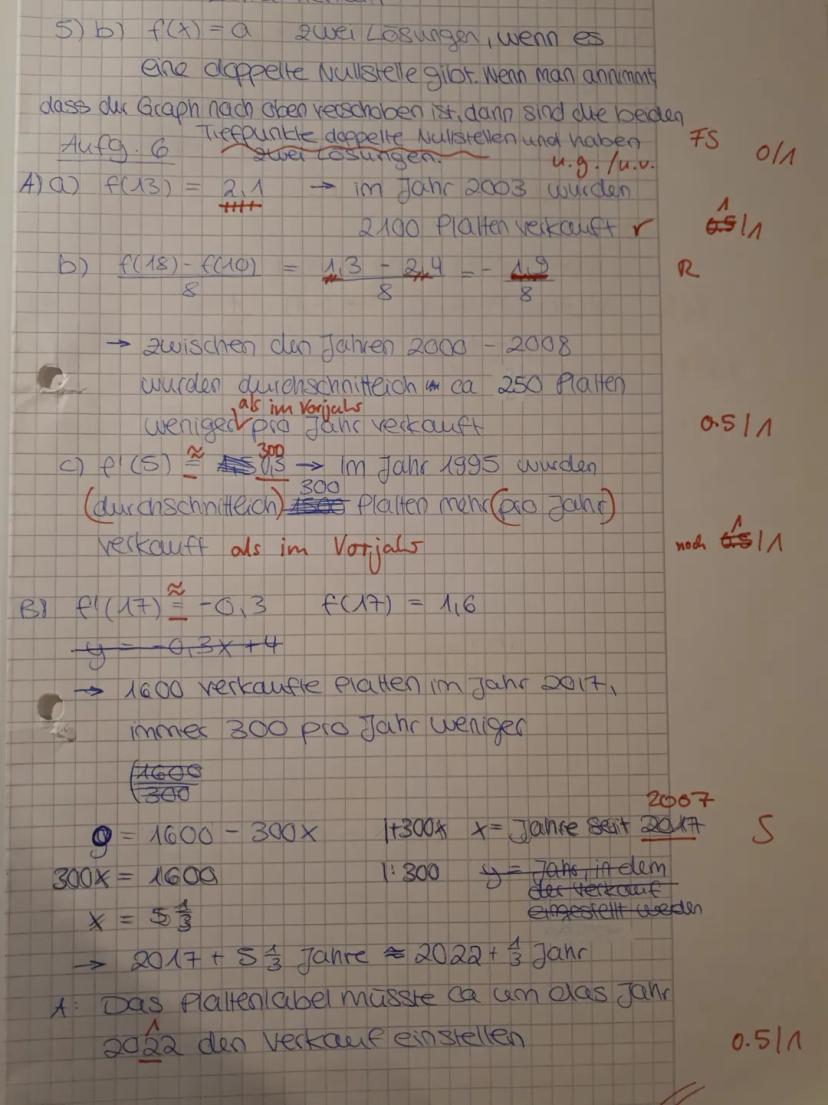 5) b) f(x) = a zwei Lösungen, wenn es
eine doppelte Nullstelle gibt. Wenn man annimmt,
dass der Graph nach oben verschoben ist, dann sind die beiden
Tiefpunkte doppelte Nullstellen und haben FS
zwei Lösungen. u.g./u.v. 0/1
Aufg. 6
A) a) f(13) = 2,1 → im Jahr 2003 wurden
2100 Platten verkauft r 1 0.5/1
b) f(18) - f(10) / 8 = 1,3 - 2,4 / 8 = - 1,9 / 8 R
→ zwischen den Jahren 2000 - 2008
wurden durchschnittleich ca 250 Platten
als im Vorjahr
weniger pro Jahr verkauft 0.5/1
c) f'(5) ≈ = 0,3 300 → Im Jahr 1995 wurden
(durchschnittleich) 300 Platten mehr (pro Jahr)
verkauft als im Vorjahr noch 1 0.5/1
B) f'(17) ≈ = -0,3 f(17) = 1,6
y = -0,3x+4
→ 1600 verkaufte Platten im Jahr 2017,
immer 300 pro Jahr weniger
1600
300
2007
0 = 1600 - 300x |+300x x = Jahre seit 2017 S
300x = 1600 |: 300 y = Jahr, in dem
der Verkauf
eingestellt werden
x = 5 1/3
→ 2017 + 5 1/3 Jahre ≈ 2022 + 1/3 Jahr
A: Das Plattenlabel müsste ca um das Jahr
1
2022 den Verkauf einstellen 0.5/1